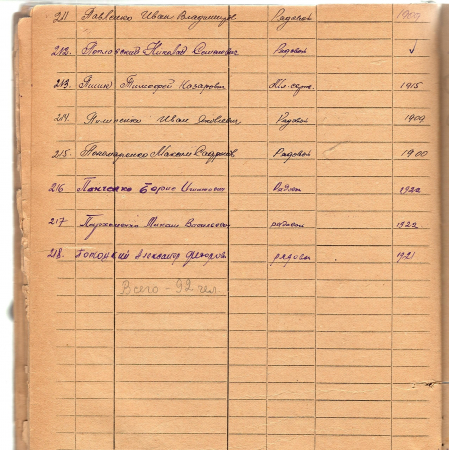 211 Павленко Иван Владимиров Рядовой 1909
212. Поплавский Николай Семенович Рядовой
213. Яшин Тимофей Назарович Мл-серж. 1915
214. Пилипенко Иван Яковлевич Рядовой 1909
215. Пономаренко Максим Рядовой 1900
216 Панченко Борис Игнатович Рядовой 1922
217 Михаил Васильевич рядовой 1922
218. Потоцкий Александр Федоров рядовой 1921
Всего - 92 чел.